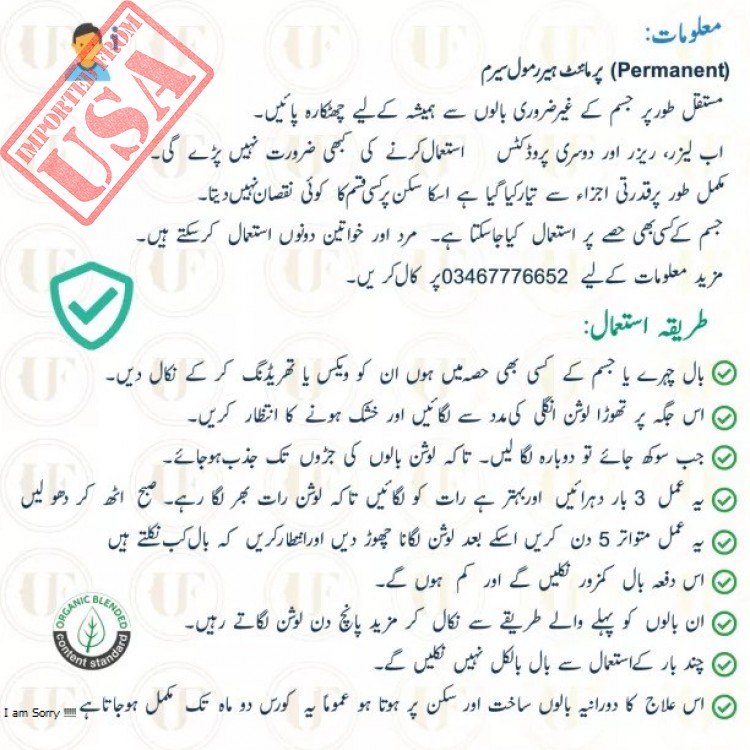 معلومات:
(Permanent) پرمائنٹ ہیررمول سیرم
مستقل طورپر جسم کے غیرضروری بالوں سے ہمیشہ کےلیے چھٹکارہ پائیں۔
اب لیزر، ریزر اور دوسری پروڈکٹس استعمال کرنے کی کبھی ضرورت نہیں پڑے گی۔
مکمل طور پرقدرتی اجزاء سے تیارکیاگیا ہے اسکا سکن پرکسی قسم کا کوئی نقصان نہیں دیتا۔
جسم کےکسی بھی حصے پر استعمال کیاجاسکتا ہے۔ مرد اور خواتین دونوں استعمال کرسکتے ہیں۔
مزید معلومات کےلیے 03467776652پر کال کریں۔
طریقہ استعمال:
بال چہرے یا جسم کے کسی بھی حصہ میں ہوں ان کو ویکس یا تھریڈنگ کر کے نکال دیں۔
اس جگہ پر تھوڑا لوشن انگلی کی مدد سے لگائیں اور خشک ہونے کا انتظار کریں۔
جب سوکھ جائے تو دوبارہ لگا لیں۔ تاکہ لوشن بالوں کی جڑوں تک جذب ہوجائے۔
یہ عمل 3 بار دہرائیں اوربہتر ہے رات کو لگائیں تاکہ لوشن رات بھر لگا رہے۔ صبح اٹھ کر دھو لیں
یہ عمل متواتر 5 دن کریں اسکے بعد لوشن لگانا چھوڑ دیں اورانتظارکریں کہ بال کب نکلتے ہیں
اس دفعہ بال کمزور نکلیں گے اور کم ہوں گے۔
ان بالوں کو پہلے والے طریقے سے نکال کر مزید پانچ دن لوشن لگاتے رہیں۔
چند بار کےاستعمال سے بال بالکل نہیں نکلیں گے۔
اس علاج کا دورانیہ بالوں ساخت اور سکن پر ہوتا ہو عموماً یہ کورس دو ماہ تک مکمل ہوجاتاہے
IMPORTED FROM
USA
ORGANIC BLENDED
content standard
I am Sorry !!!!!
UF